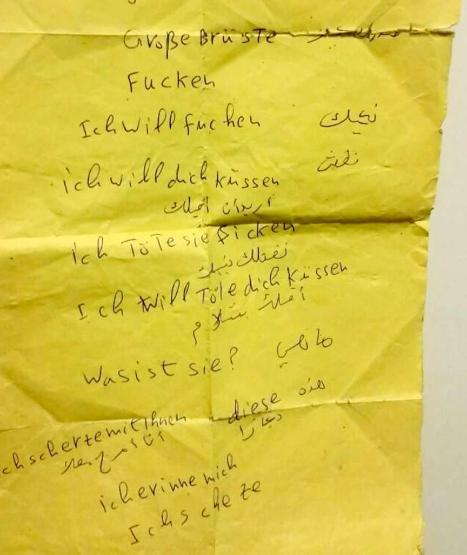 Große Brüste
Fucken
Ich will fucken نيك
ich will dich küssen
اريدان اقبلك
ich Töte sie ficken
نقتلك نيك
Ich will Töte dich küssen
Was ist sie? ماهي
diese هذه
ich scherze mit Ihnen
ich erinne mich
Ich scheze